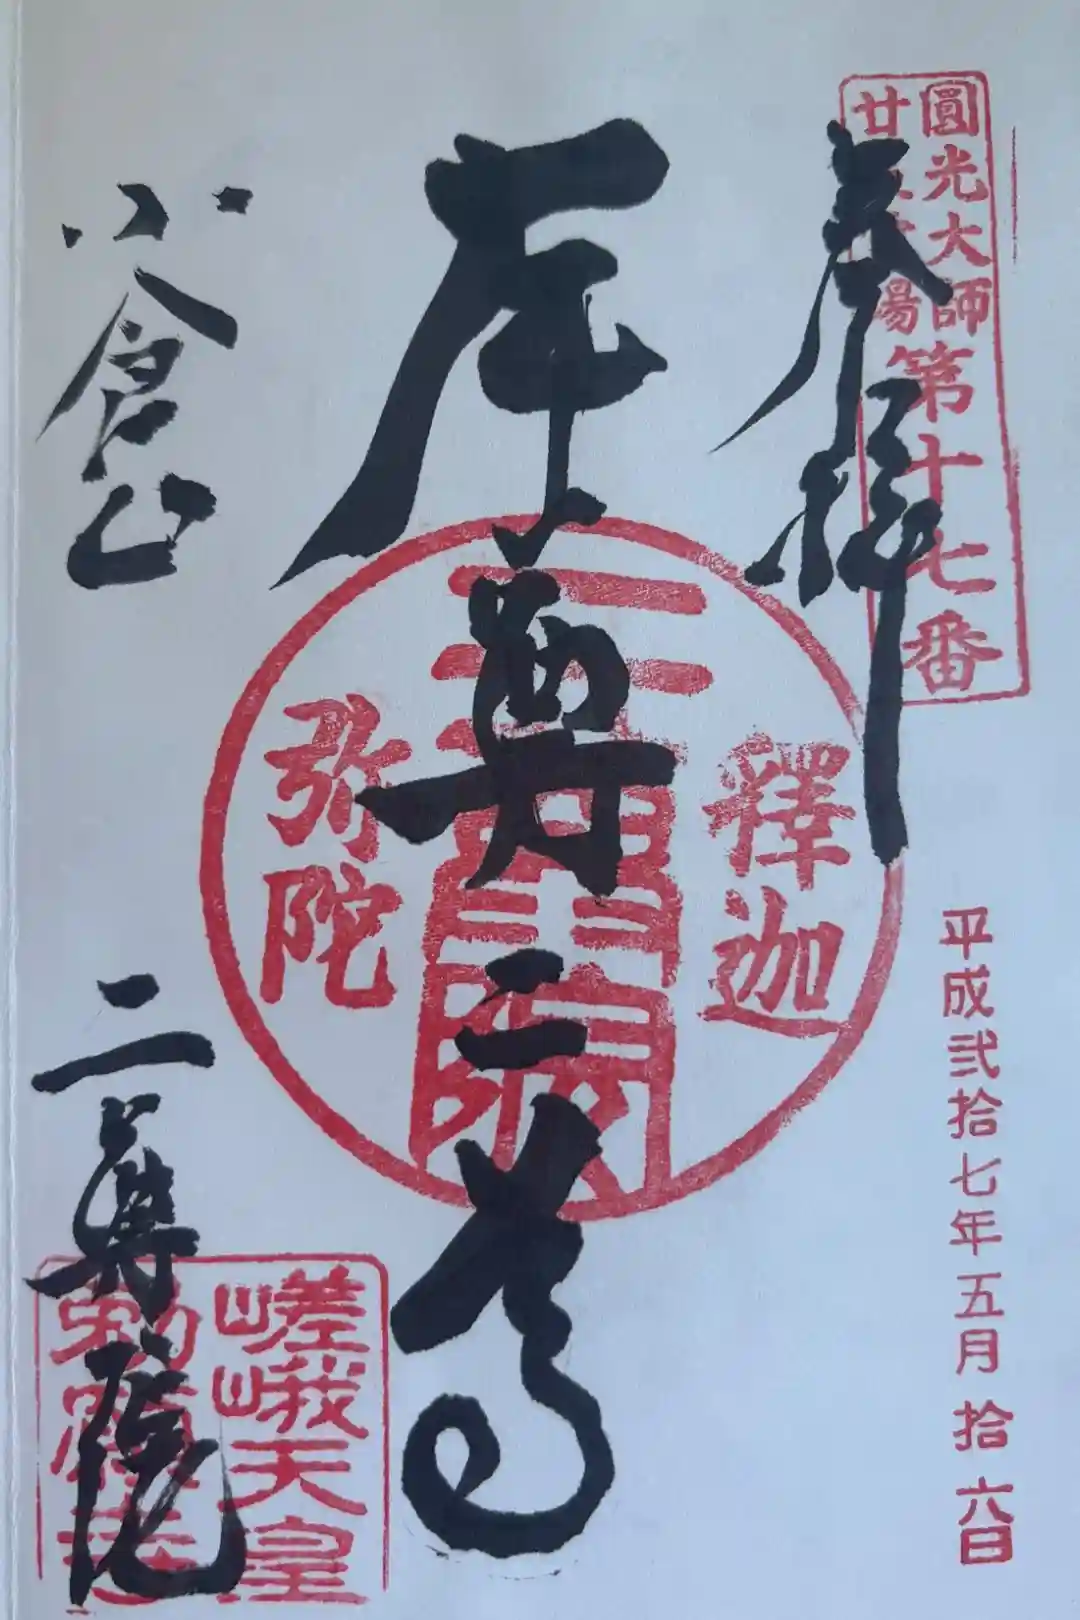 圓光大師
廿五霊場
第十七番
奉拝
平成弐拾七年五月拾六日
本尊二尊
釋迦
弥陀
小倉山
二尊院
嵯峨天皇
勅願